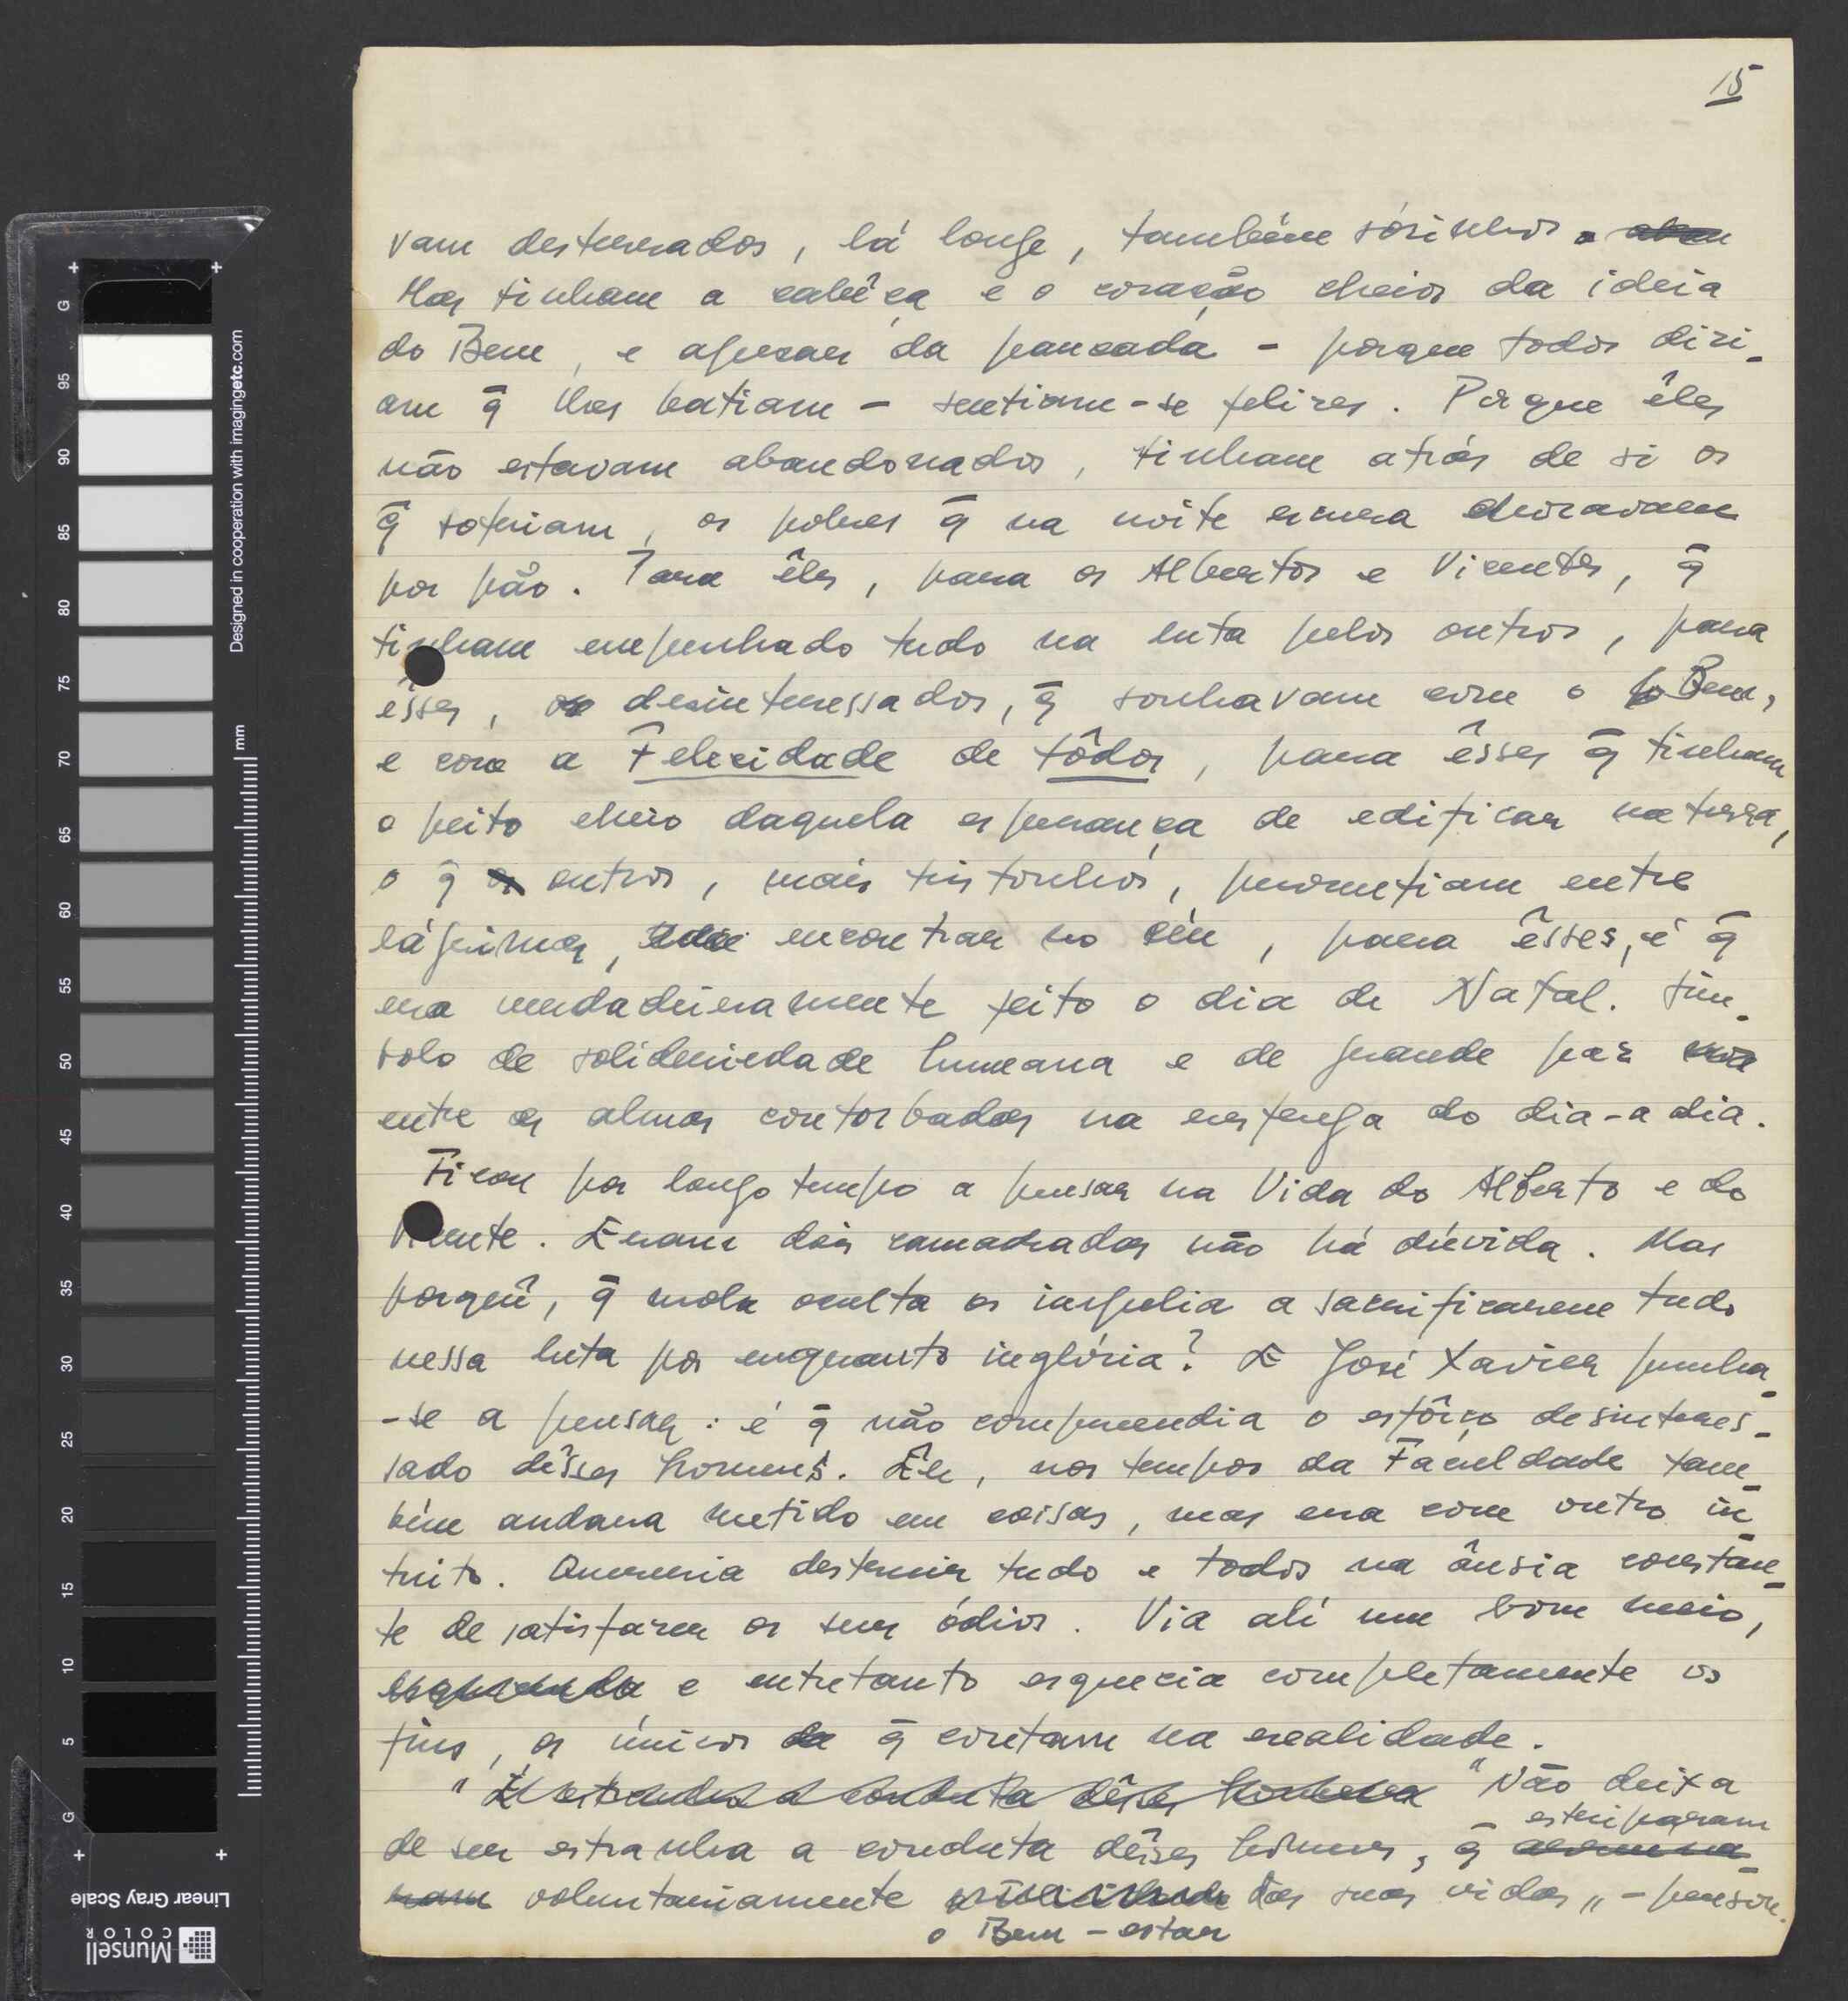 15
vam desterrados, lá longe, também sòsinhos.
Mas tinham a cabêça e o coração cheios da ideia
do Bem, e apesar da pancada - porque todos dizi-
am q̄ lhes batiam - sentiam-se felizes. Porque êles
não estavam abandonados, tinham atrás de si os
q̄ sofriam, os pobres q̄ na noite escura choravam
por pão. Para êles, para os Albertos e Vicentes, q̄
tinham empenhado tudo na luta pelos outros, para
êsses, os desinteressados, q̄ sonhavam com o Bem,
e com a Felicidade de tôdos, para êsses q̄ tinham
o peito cheio daquela esperança de edificar na terra,
o q̄ os outros, mais tristonhos, prometiam entre
lágrimas, encontrar no céu, para êsses, é q̄
era verdadeiramente feito o dia de Natal. Sim-
bolo de solideriedade humana e de grande paz
entre as almas contorbadas na refrega do dia-a dia.
Ficou por longo tempo a pensar na Vida do Alberto e do
Vicente. Eram dois camaradas não há dúvida. Mas
porquê, q̄ mola oculta os impelia a sacrificarem tudo
nessa luta por enquanto inglória? E José Xavier punha-
-se a pensar: é q̄ não compreendia o esfôrço desinteres-
sado dêsses homens. Êle, nos tempos da Faculdade tam-
bém andara metido em coisas, mas era com outro in-
tuito. Quereria destruir tudo e todos na ânsia constan-
te de satisfazer os seus ódios. Via alí um bom meio,
e entretanto esquecia completamente os
fins, os únicos q̄ contam na realidade.
" É estranha a conduta dêsses homens "Não deixa
esteriparam
de ser estranha a conduta dêsses homens, q̄
voluntariamente das suas vidas" - pensou.
o Bem-estar
G
95
90
85
80
75
70
65
60
55
50
45
40
35
30
25
20
15
10
5
G
mm
Designed in cooperation with imagingetc.com
Linear Gray Scale
Munsell
COLOR